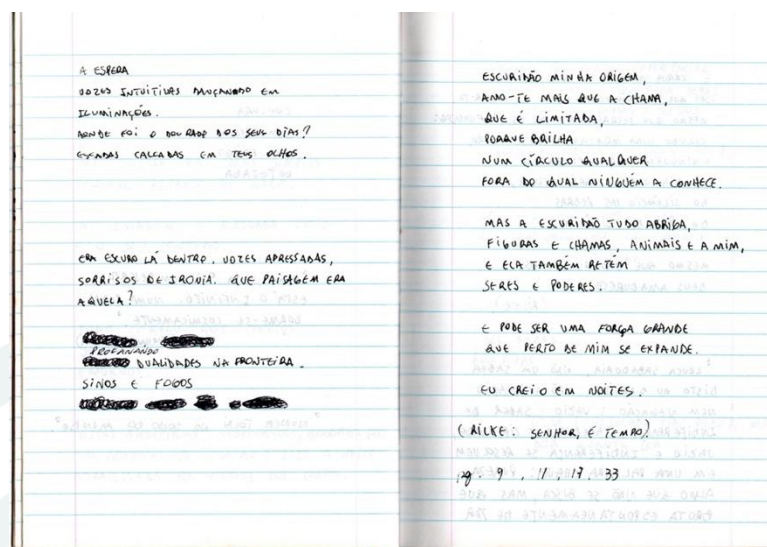 A ESPERA
VOZES INTUITIVAS DANÇANDO EM
ILUMINAÇÕES.
AONDE FOI O DOURADO DOS SEUS DIAS?
ESCADAS CALCADAS EM TEUS OLHOS.
ERA ESCURO LÁ DENTRO. VOZES APRESSADAS,
SORRISOS DE IRONIA. QUE PAISAGEM ERA
AQUELA?
PROFANANDO
DUALIDADES NA FRONTEIRA.
SINOS E FOGOS
ESCURIDÃO MINHA ORIGEM,
AMO-TE MAIS QUE A CHAMA,
QUE É LIMITADA,
PORQUE BRILHA
NUM CÍRCULO QUALQUER
FORA DO QUAL NINGUÉM A CONHECE.
MAS A ESCURIDÃO TUDO ABRIGA,
FIGURAS E CHAMAS, ANIMAIS E A MIM,
E ELA TAMBÉM RETÉM
SERES E PODERES.
E PODE SER UMA FORÇA GRANDE
QUE PERTO DE MIM SE EXPANDE.
EU CREIO EM NOITES.
(RILKE: SENHOR, É TEMPO)
pg. 9, 11, 17, 33